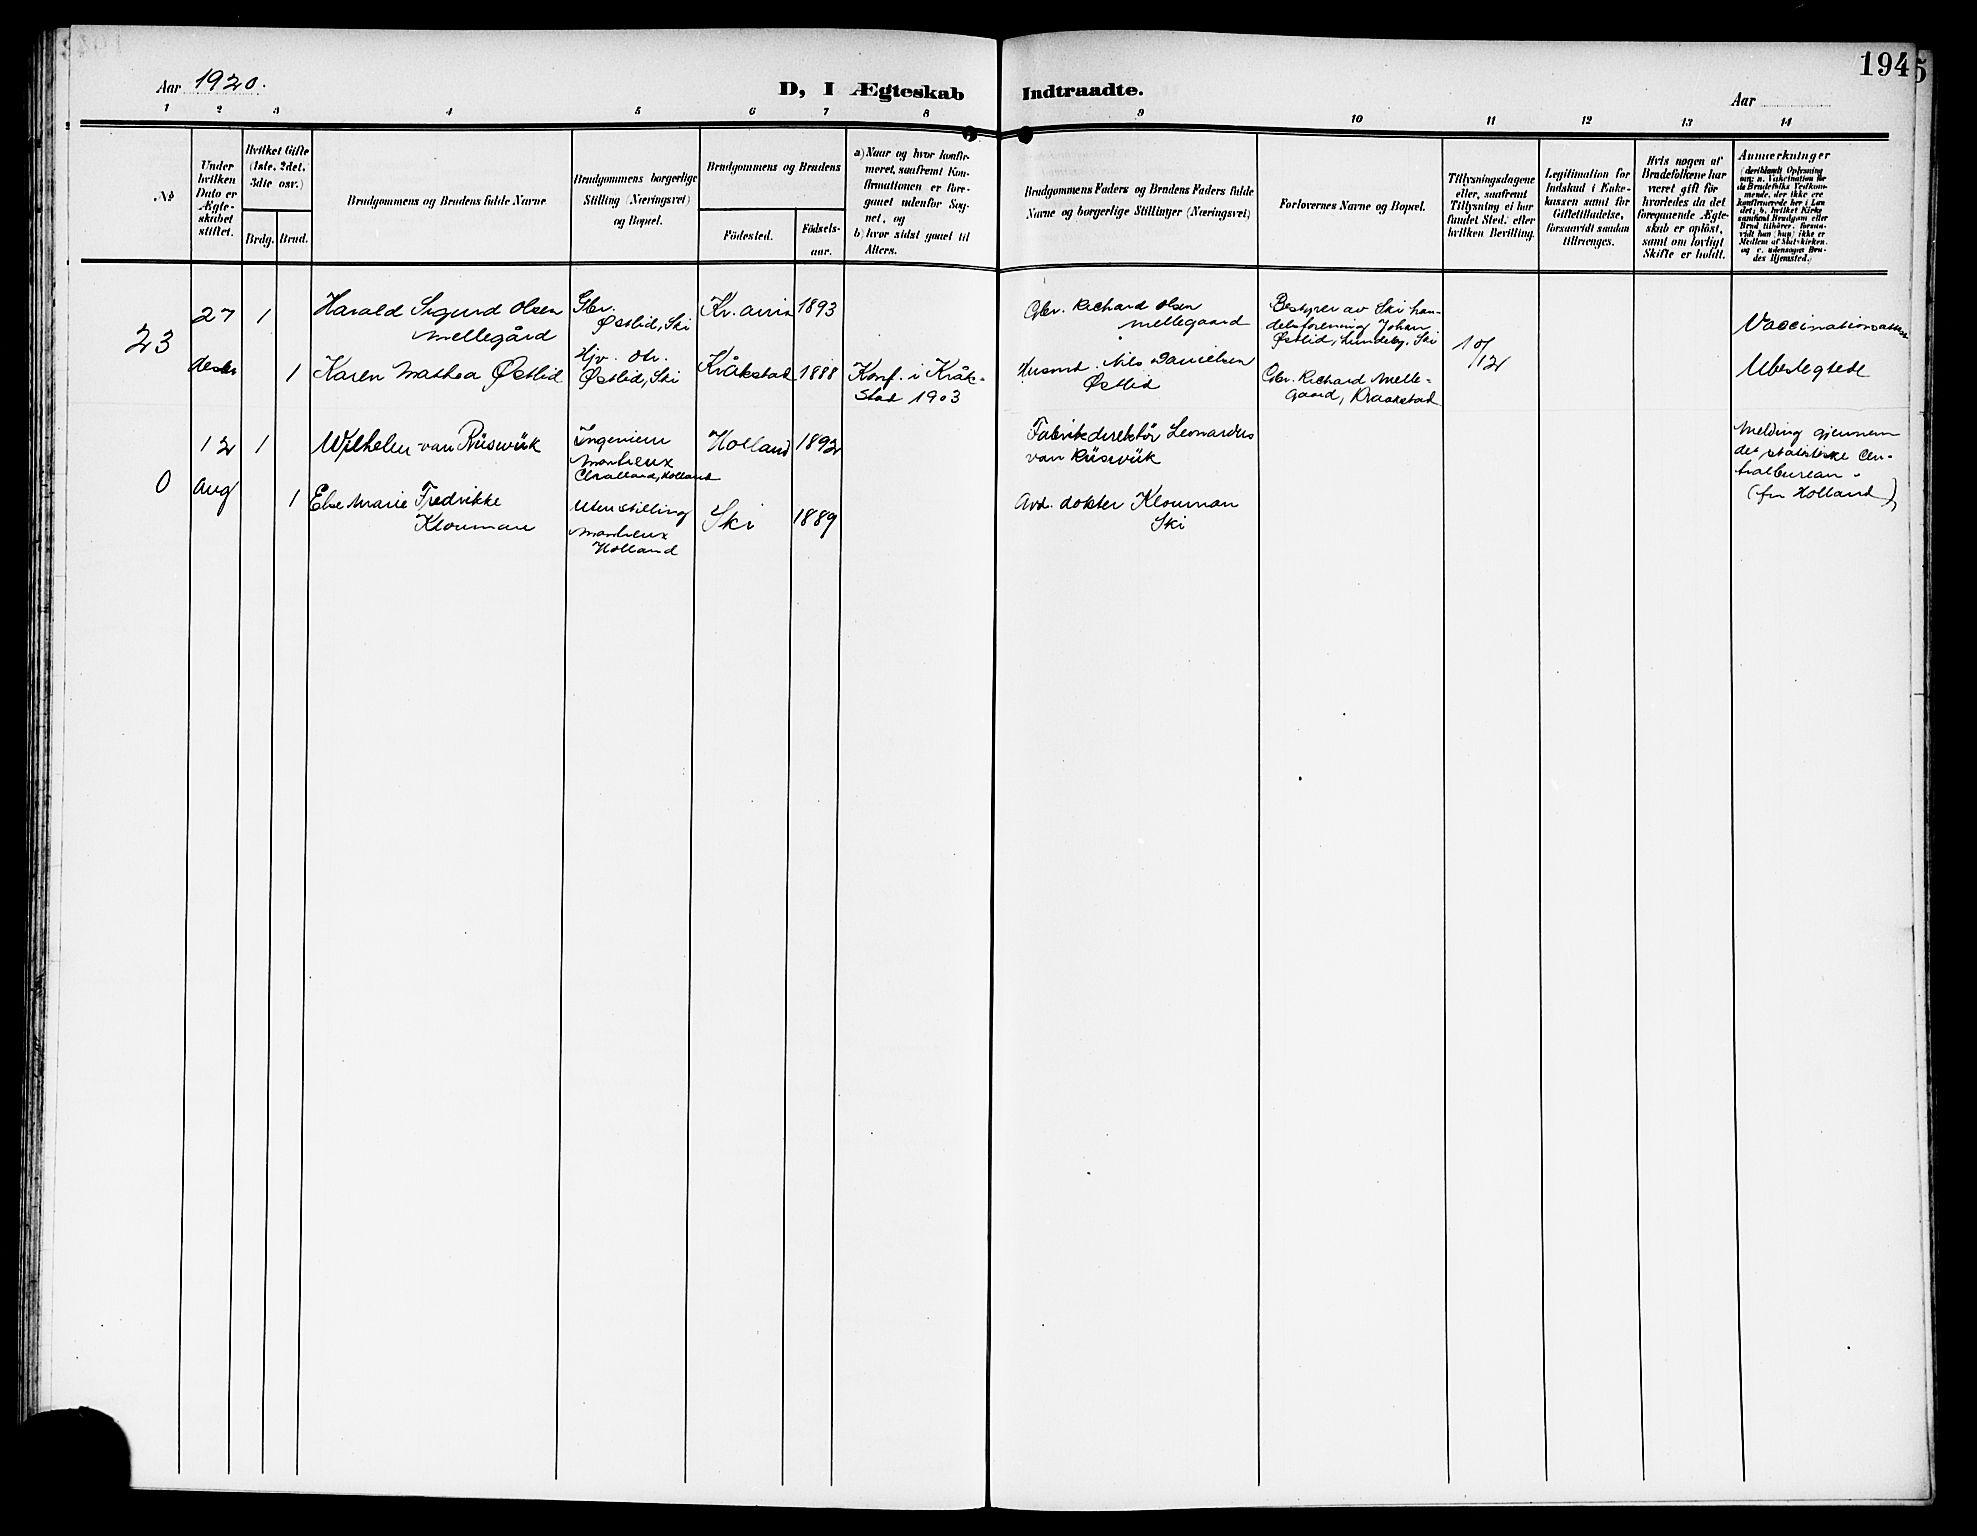 Aar 1920.
D, I Ægteskab Indtraadte.
Aar
194
5
1 2 3 4 5 6 7 8 9 10 11 12 13 14
No
Under
hvilken
Dato er
Ægte-
skabet
stiftet.
Hvilket Gifte
(1ste, 2det,
3die osv.)
Brdg. Brud.
Brudgommens og Brudens fulde Navne
Brudgommens borgerlige
Stilling (Næringsvei)
og Bopæl.
Brudgommens og Brudens
Fødested.
Fødsels-
aar.
a) Naar og hvor konfir-
meret, saafremt Kon-
firmationen er fore-
gaaet udenfor Sog-
net, og
b) hvor sidst gaaet til
Alters.
Brudgommens Faders og Brudens Faders fulde
Navne og borgerlige Stillinger (Næringsvei)
Forlovernes Navne og Bopæl.
Tillysningsdagene
eller, saafremt
Tillysning ei har
fundet Sted, efter
hvilken Bevilling.
Legitimation for
Indskud i Enke-
kassen samt for
Giftetilladelse,
forsaavidt saadan
tiltrænges.
Hvis nogen af
Brudefolkene har
været gift før
hvorledes da det
foregaaende Ægte-
skab er opløst,
samt om lovligt
Skifte er holdt.
Anmærkninger
(deriblandt Oplysning
om: a. Vakcination for
de Brudefolks Vedkom-
mende, der ikke ere
konfirmerede her i Lan-
det; b. hvilket Kirke-
samfund Brudgom eller
Brud tilhører, forsaa-
vidt han (hun) ikke er
Medlem af Statskirken,
og c. udensogns Bru-
des Hjemsted.)
23
27
desbr
1
Harald Sigurd Olsen
Mellegård
Gbr.
Østlid, Ski
Kr.ania
1893
Gbr. Richard Olsen
Mellegaard
Bestyrer av Ski han-
delsforening Johan
Østlid, Lundeby, Ski
10/12
Vaccinationsattest
1
Karen Mathea Østlid
Hjv. dtr.
Østlid, Ski
Kråkstad
1888
Konf. i Kråk-
stad 1903
Husmd. Nils Danielsen
Østlid
Gbr. Richard Melle-
gaard, Kraakstad
Ubeslegtede
0
12
aug
1
Wilhelm van Rüswük
Ingeniør
Montreux
Holland
Holland
1892
Fabrikdirektør Leonardus
van Rüswük
Melding gjennem
det statistiske Cen-
tralbureau.
(fra Holland)
1
Else Marie Fredrikke
Klouman
Uten stilling
Montreux
Holland
Ski
1889
Avd. dokter Klouman
Ski